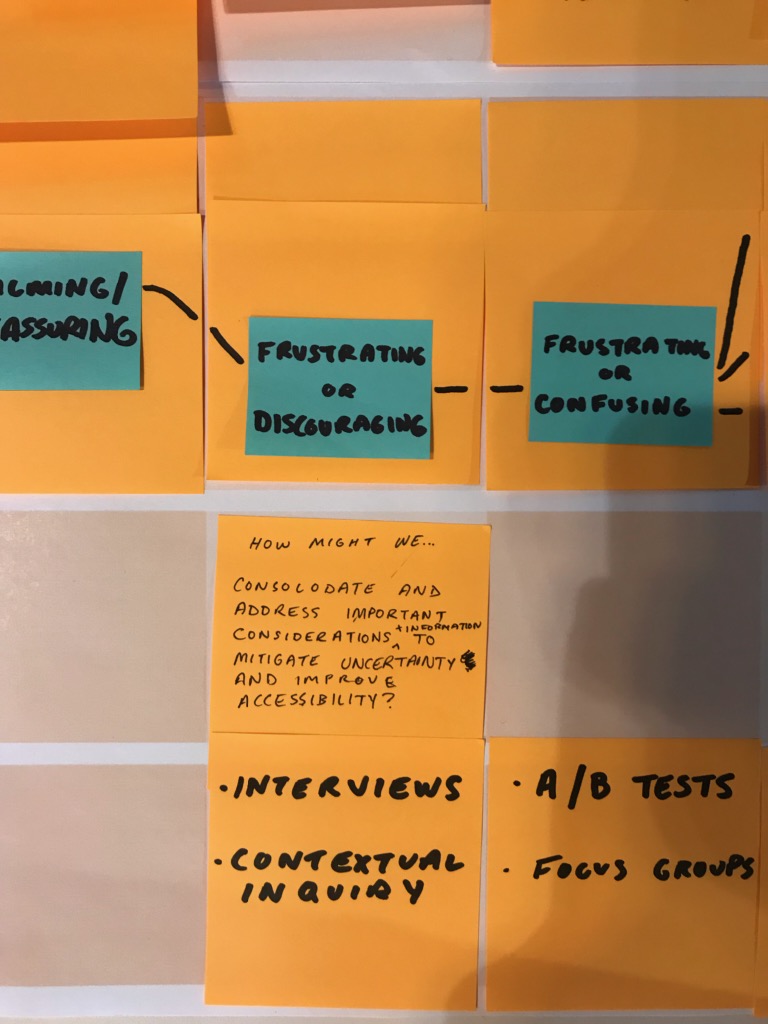 FRUSTRATING
OR
DISCOURAGING
FRUSTRATING
OR
CONFUSING
HOW MIGHT WE...
CONSOLODATE AND
ADDRESS IMPORTANT
CONSIDERATIONS + INFORMATION TO
MITIGATE UNCERTAINTY
AND IMPROVE
ACCESSIBILITY?
· INTERVIEWS
· CONTEXTUAL
INQUIRY
· A/B TESTS
· FOCUS GROUPS